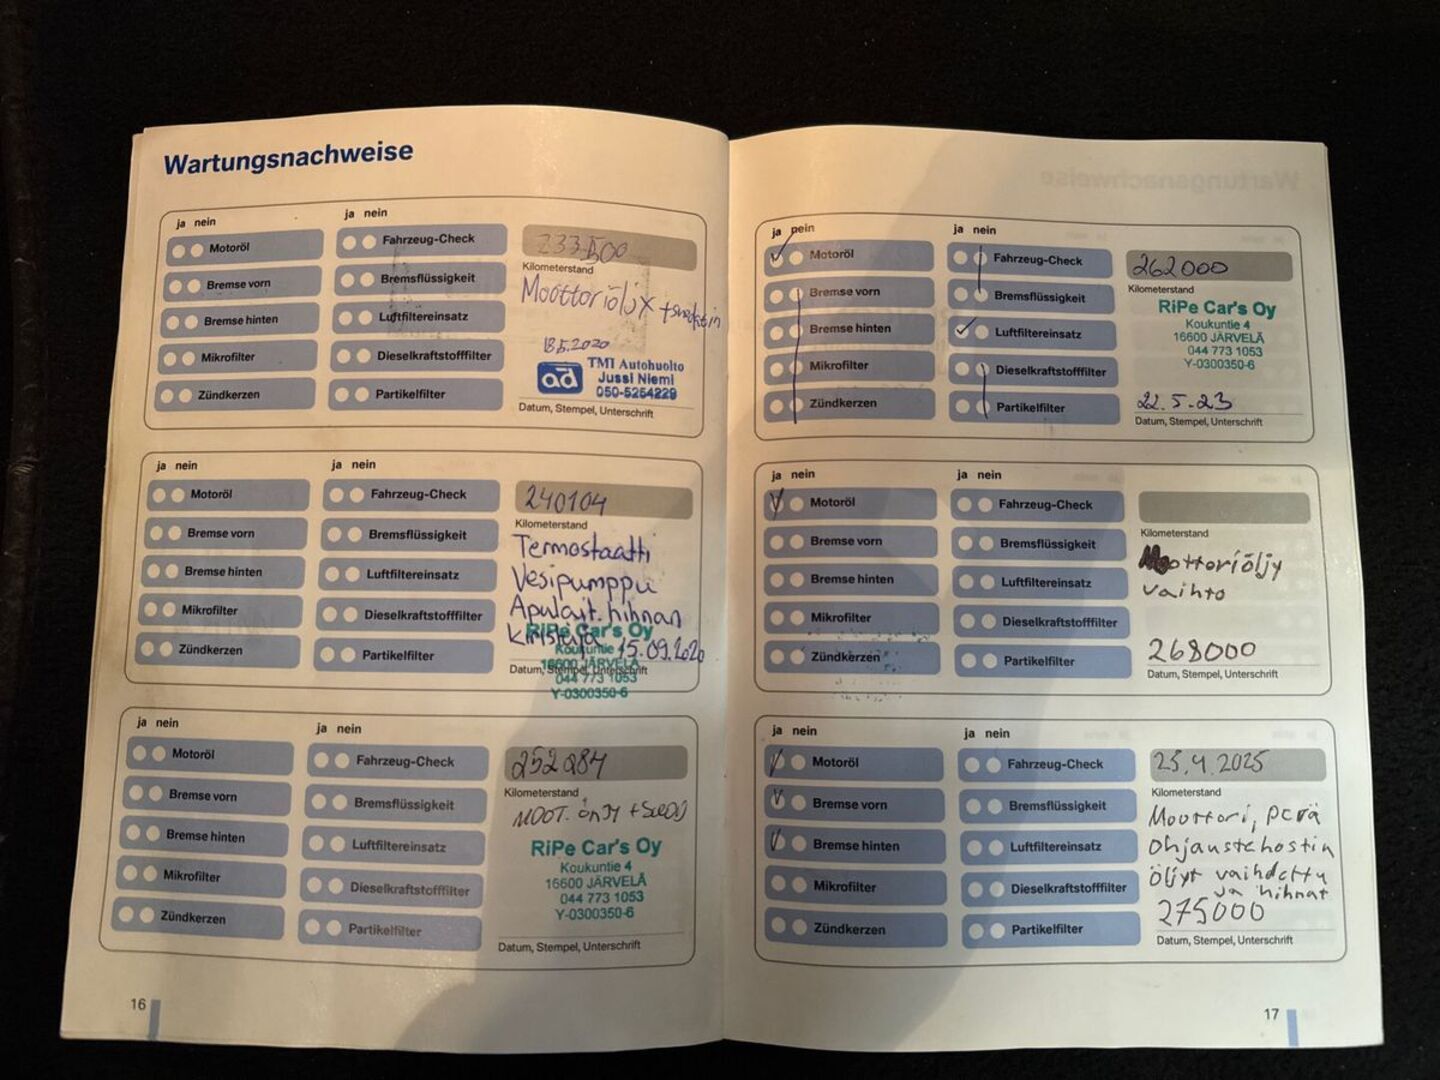 Wartungsnachweise
ja nein
Motoröl
Bremse vorn
Bremse hinten
Mikrofilter
Zündkerzen
ja nein
Fahrzeug-Check
Bremsflüssigkeit
Luftfiltereinsatz
Dieselkraftstofffilter
Partikelfilter
233.500
Kilometerstand
Moottoriöljy
TMI Autohuolto
ad Jussi Niemi
050-5264229
Datum, Stempel, Unterschrift
ja nein
Motoröl
Bremse vorn
Bremse hinten
Mikrofilter
Zündkerzen
ja nein
Fahrzeug-Check
Bremsflüssigkeit
Luftfiltereinsatz
Dieselkraftstofffilter
Partikelfilter
240104
Kilometerstand
Termostaatti
Vesipumppu
Apulait. hihnan
15.09.2020
RiPe Car's Oy
Koukuntie
16600 JÄRVELÄ
Datum, Stempel, Unterschrift
044 773 1053
Y-0300350-6
ja nein
Motoröl
Bremse vorn
Bremse hinten
Mikrofilter
Zündkerzen
ja nein
Fahrzeug-Check
Bremsflüssigkeit
Luftfiltereinsatz
Dieselkraftstofffilter
Partikelfilter
252284
Kilometerstand
MOOT.
RiPe Car's Oy
Koukuntie 4
16600 JÄRVELÄ
044 773 1053
Y-0300350-6
Datum, Stempel, Unterschrift
16
ja nein
Motoröl
Bremse vorn
Bremse hinten
Mikrofilter
Zündkerzen
ja nein
Fahrzeug-Check
Bremsflüssigkeit
Luftfiltereinsatz
Dieselkraftstofffilter
Partikelfilter
262000
Kilometerstand
RiPe Car's Oy
Koukuntie 4
16600 JÄRVELÄ
044 773 1053
Y-0300350-6
22.5.23
Datum, Stempel, Unterschrift
ja nein
Motoröl
Bremse vorn
Bremse hinten
Mikrofilter
Zündkerzen
ja nein
Fahrzeug-Check
Bremsflüssigkeit
Luftfiltereinsatz
Dieselkraftstofffilter
Partikelfilter
Kilometerstand
Moottoriöljy
vaihto
268000
Datum, Stempel, Unterschrift
ja nein
Motoröl
Bremse vorn
Bremse hinten
Mikrofilter
Zündkerzen
ja nein
Fahrzeug-Check
Bremsflüssigkeit
Luftfiltereinsatz
Dieselkraftstofffilter
Partikelfilter
Kilometerstand
Moottori, perä
ohjaustehostin
öljyt vaihdettu
ja hihnat
275000
Datum, Stempel, Unterschrift
17